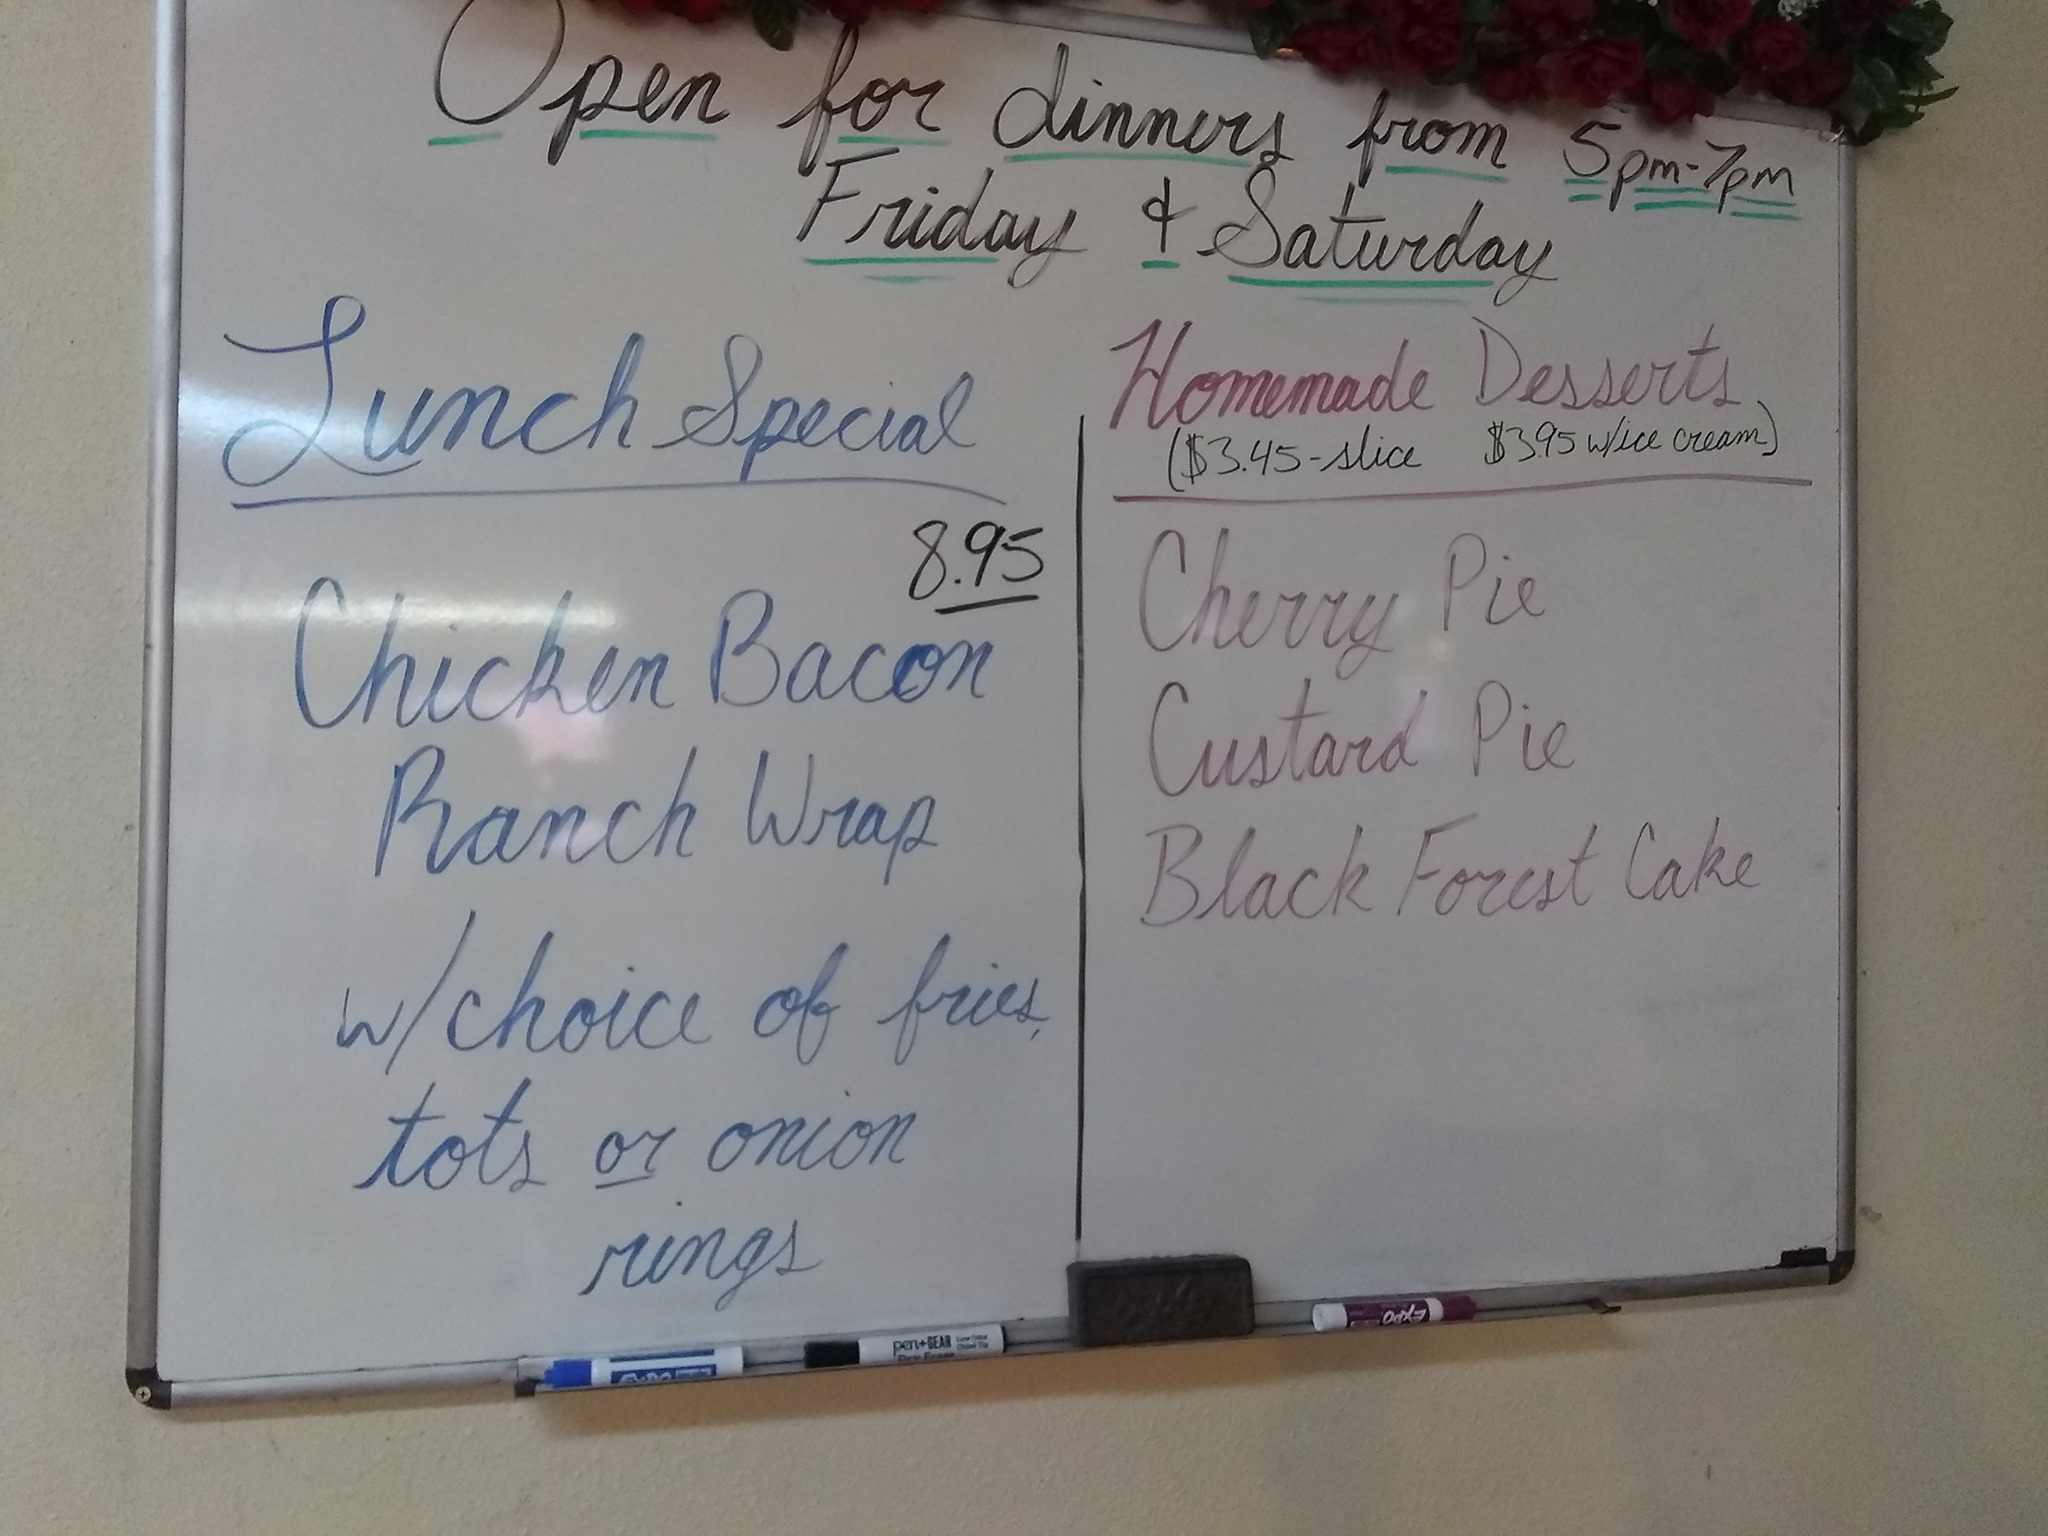 Open for dinners from 5pm-7pm
Friday & Saturday
Lunch Special
8.95
Chicken Bacon
Ranch Wrap
w/choice of fries,
tots or onion
rings
Homemade Desserts
($3.45-slice $3.95 w/ice cream)
Cherry Pie
Custard Pie
Black Forest Cake
EXPO
pen+GEAR
Dry Erase
EXPO